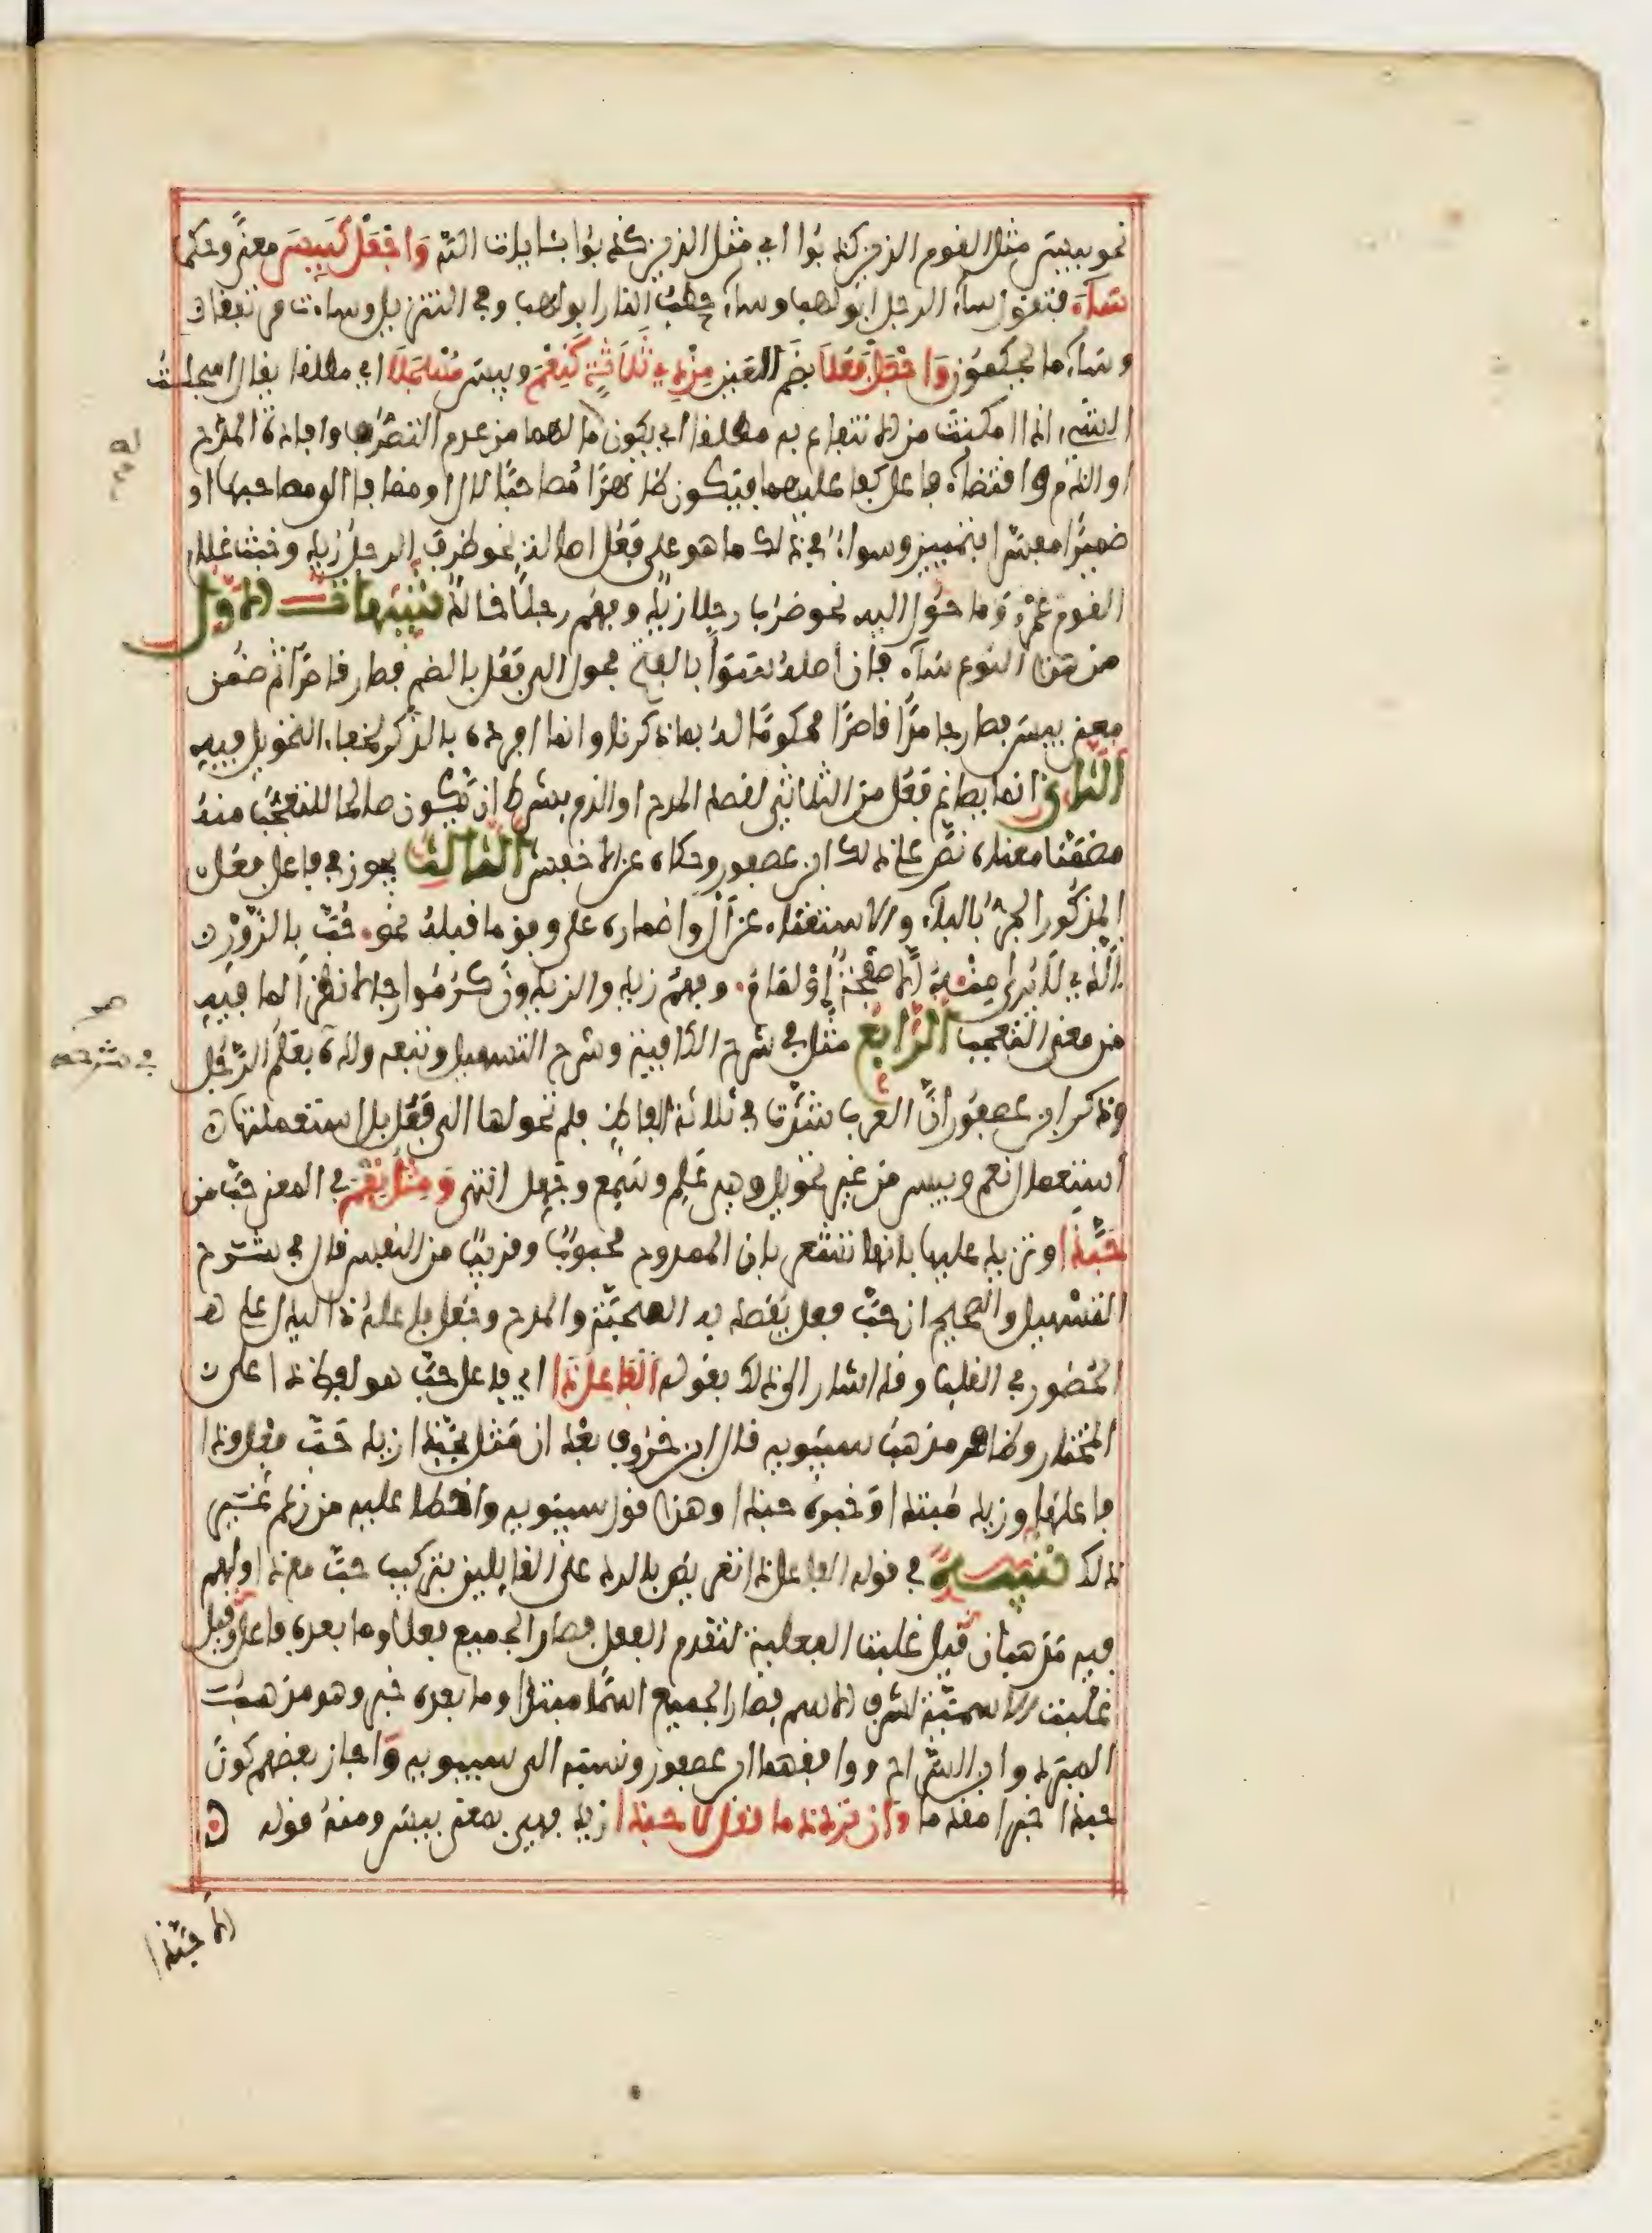 نحو بيس مثل القوم الذين كذبوا اي مثل الذين كذبوا بئايات الله وَاجْعَلْ كَبِيسَ معنًى وحكما
سَآءَ فتقول سآء الرجل ابولهب وسآء حطبُ النار ابولهب وفي التنزيل وساءت مرتفقا
وسآء ما يحكمون وَاجْعَلْ فَعُلَا بضم العين مِنْ ذِي ثَلَاثَةٍ كَنِعْمَ وبيس مُسْجَلَا اي مطلقا يقال اسجلت
الشيء اذا امكنت من الانتفاع به مطلقا اي يكون له ما لهما من عدم التصرف وافادة المدح
او الذم واقتضآء فاعل كفاعليهما فيكون ظاهرًا مصاحبًا لال او مضافا الى مصاحبها او
ضميرًا مفسرا بتمييز وسواء في ذلك ما هو على فَعُل اصالة نحو ظرف الرجل زيد وخبث غلام
القوم عمرو وما حُوّل اليه نحو ضرُب رجلا زيد وفهُم رجلًا خالد تنبيهات الاول
من هذا النوع سآء فان اصله سَوَأ بالفتح فحول الى فَعُل بالضم فصار قاصرًا ثم ضمن
معنى بيس فصار جامدًا قاصرًا محكومًا له بما ذكرنا وانما افرده بالذكر لخفاء التحويل فيه
الثاني انما يصاغ فَعُل من الثلاثي لقصد المدح او الذم بشرط ان يكون صالحا للتعجب منه
مضمَّنا معناه نصّ على ذلك ابن عصفور وحكاه عن الاخفش الثالث يجوز في فاعل فعُل
المذكور الجرُّ بالبآء والاستغناء عن أَلْ واضماره على وفق ما قبله نحو. حُبَّ بالزَّوْرِ
الَّذِي لَا يُرَى مِنْهُ إِلَّا صَفْحَةٌ أَوْ لِمَامُ. وفهُم زيد والزيدون كَرُمُوا رجالا نظرًا لما فيه
من معنى التعجب الرابع مثل في شرح الكافية وشرح التسهيل وتبعه ولده بعَلُمَ الرجل
في شرحه
وذكر ابن عصفور انَّ العرب شذَّت في ثلاثة الفاظ فلم تحولها الى فَعُل بل استعملتها
استعمال نعم وبيس من غير تحويل وهي عَلِم وسَمِع وجَهِل انتهى وَمِثْلُ نِعْمَ في المعنى حَبَّ من
حَبَّذَا وتزيد عليها بانها تشعر بان الممدوح محبوبٌ وقريبٌ من النفس قال في شرح
التسهيل والصحيح ان حَبَّ فعل يُقصد به المحبّة والمدح وجُعل فاعله ذا ليدل على
الحضور في القلب وقد اشار الى ذلك بقوله الْفَاعِلُ ذَا اي فاعل حَبَّ هو لفظ ذا على
المختار وظاهر مذهب سيبويه قال ابن خروف بعد ان مثل بحبّذا زيد حَبَّ فعل وذا
فاعلها وزيد مُبتدا وخبره حبذا وهذا قول سيبويه واخطا عليه من زعم غير
ذلك تنبيه في قوله الفاعل ذا تعريض بالرد على القائلين بتركيب حَبَّ مع ذا ولهم
فيه مذهبان قيل غلبت الفعلية لتقدم الفعل فصار الجميع فعلا وما بعده فاعل وقيل
غلبت الاسميّة لشرف الاسم فصار الجميع اسمًا مبتدا وما بعده خبر وهو مذهب
المبرد وابن السراج ووافقهما ابن عصفور ونسبه الى سيبويه وَاجاز بعضهم كون
حبذا خبرا مقدما وَإِنْ تُرِدْ ذَمًّا فَقُلْ لَا حَبَّذَا زيد فهي بمعنى بيس ومنه قوله
الا حبّذا